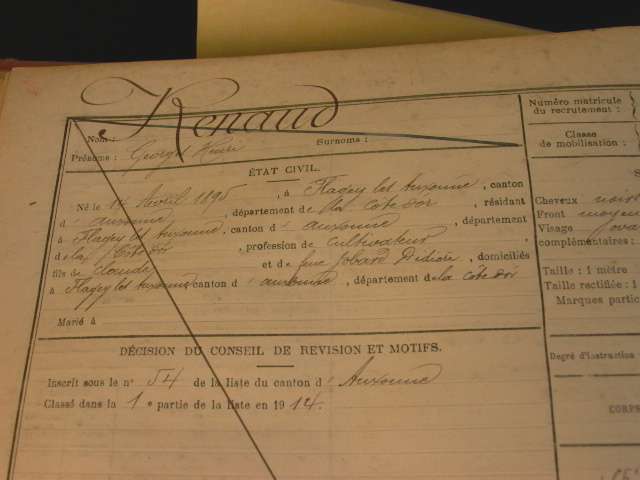 Renaud
Nom :
Prénoms : Georges Henri Surnoms :
ÉTAT CIVIL.
Né le 14 Avril 1895, à Flagey les Auxonne, canton
d'auxonne, département de la Cote d'or, résidant
à Flagey les Auxonne, canton d'auxonne, département
de la Cote d'or, profession de cultivateur,
fils de Claude et de feue Jobard Didière, domiciliés
à Flagey les Auxonne, canton d'auxonne, département de la cote d'or
Marié à
DÉCISION DU CONSEIL DE REVISION ET MOTIFS.
Inscrit sous le n° 54 de la liste du canton d'Auxonne
Classé dans la 1e partie de la liste en 1914.
Numéro matricule
du recrutement :
Classe
de mobilisation :
Cheveux noirs
Front moyen
Visage
complémentaires :
Taille : 1 mètre
Taille rectifiée : 1
Marques partic
Degré d'instruction
CORPS